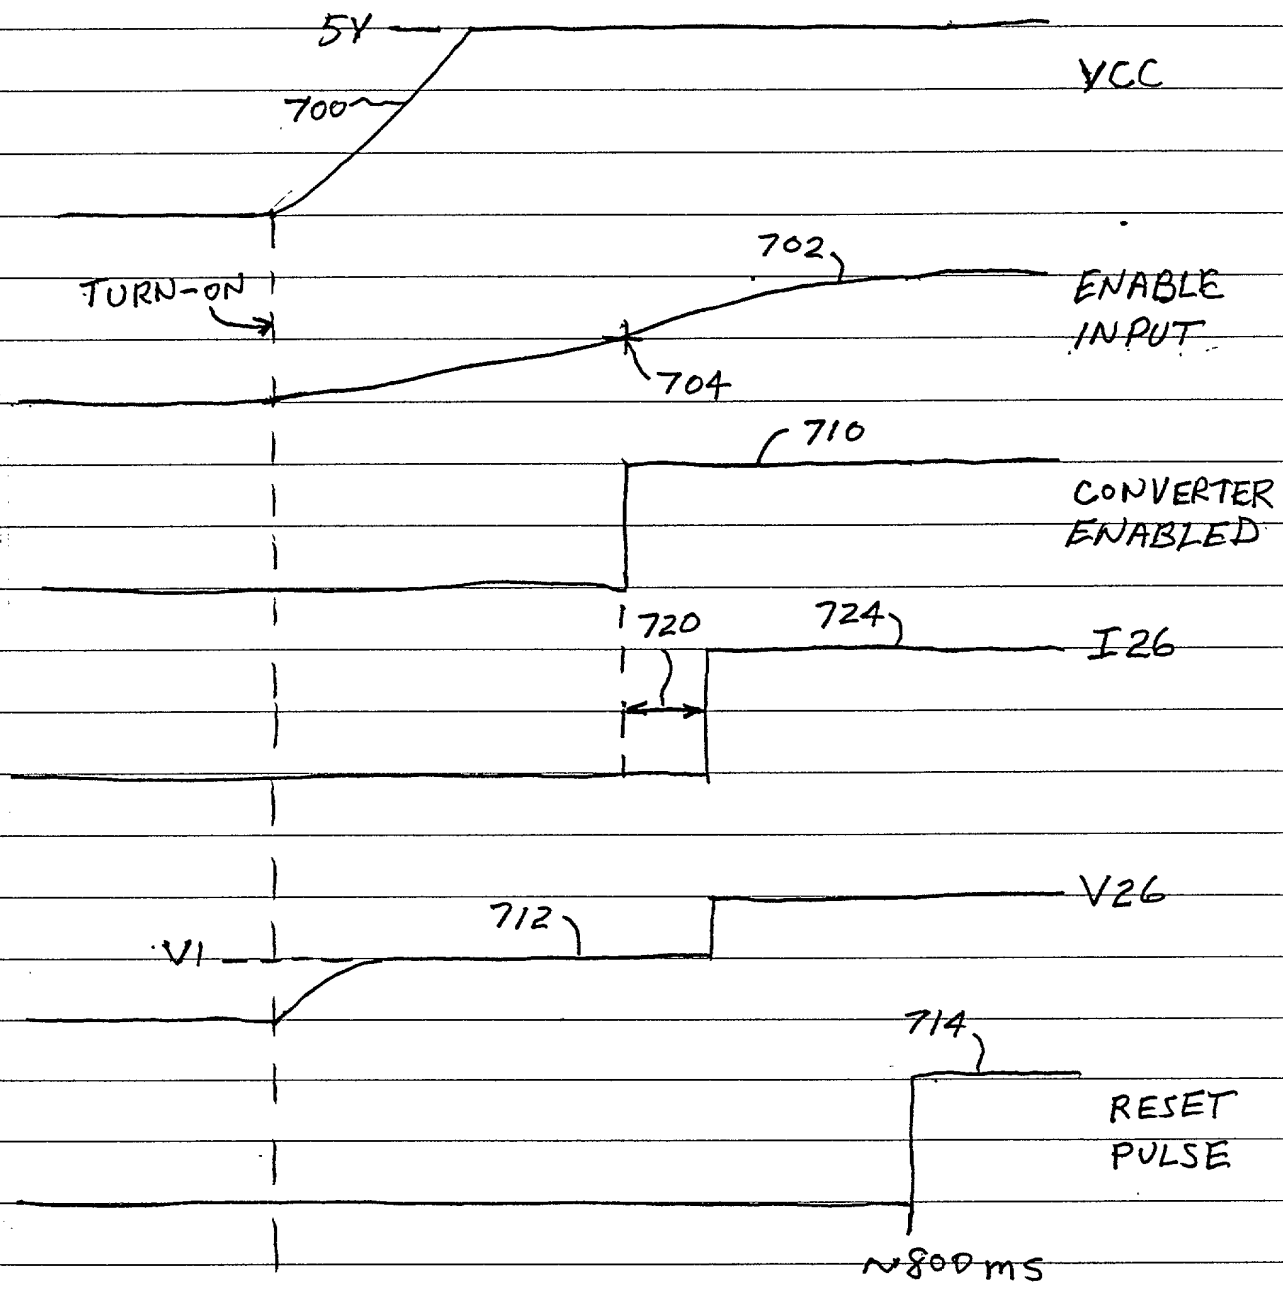 5V
VCC
700
702
TURN-ON
ENABLE
INPUT
704
710
CONVERTER
ENABLED
720
724
I26
V26
712
V1
714
RESET
PULSE
~800ms